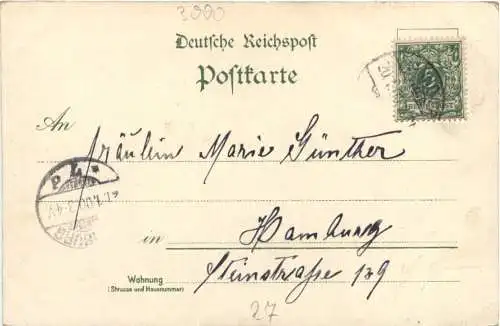 3000
Deutsche Reichspost
Postkarte
An
Fräulein Marie Günther
in Hamburg
Wohnung
(Strasse und Hausnummer)
Steinstraße 129
27